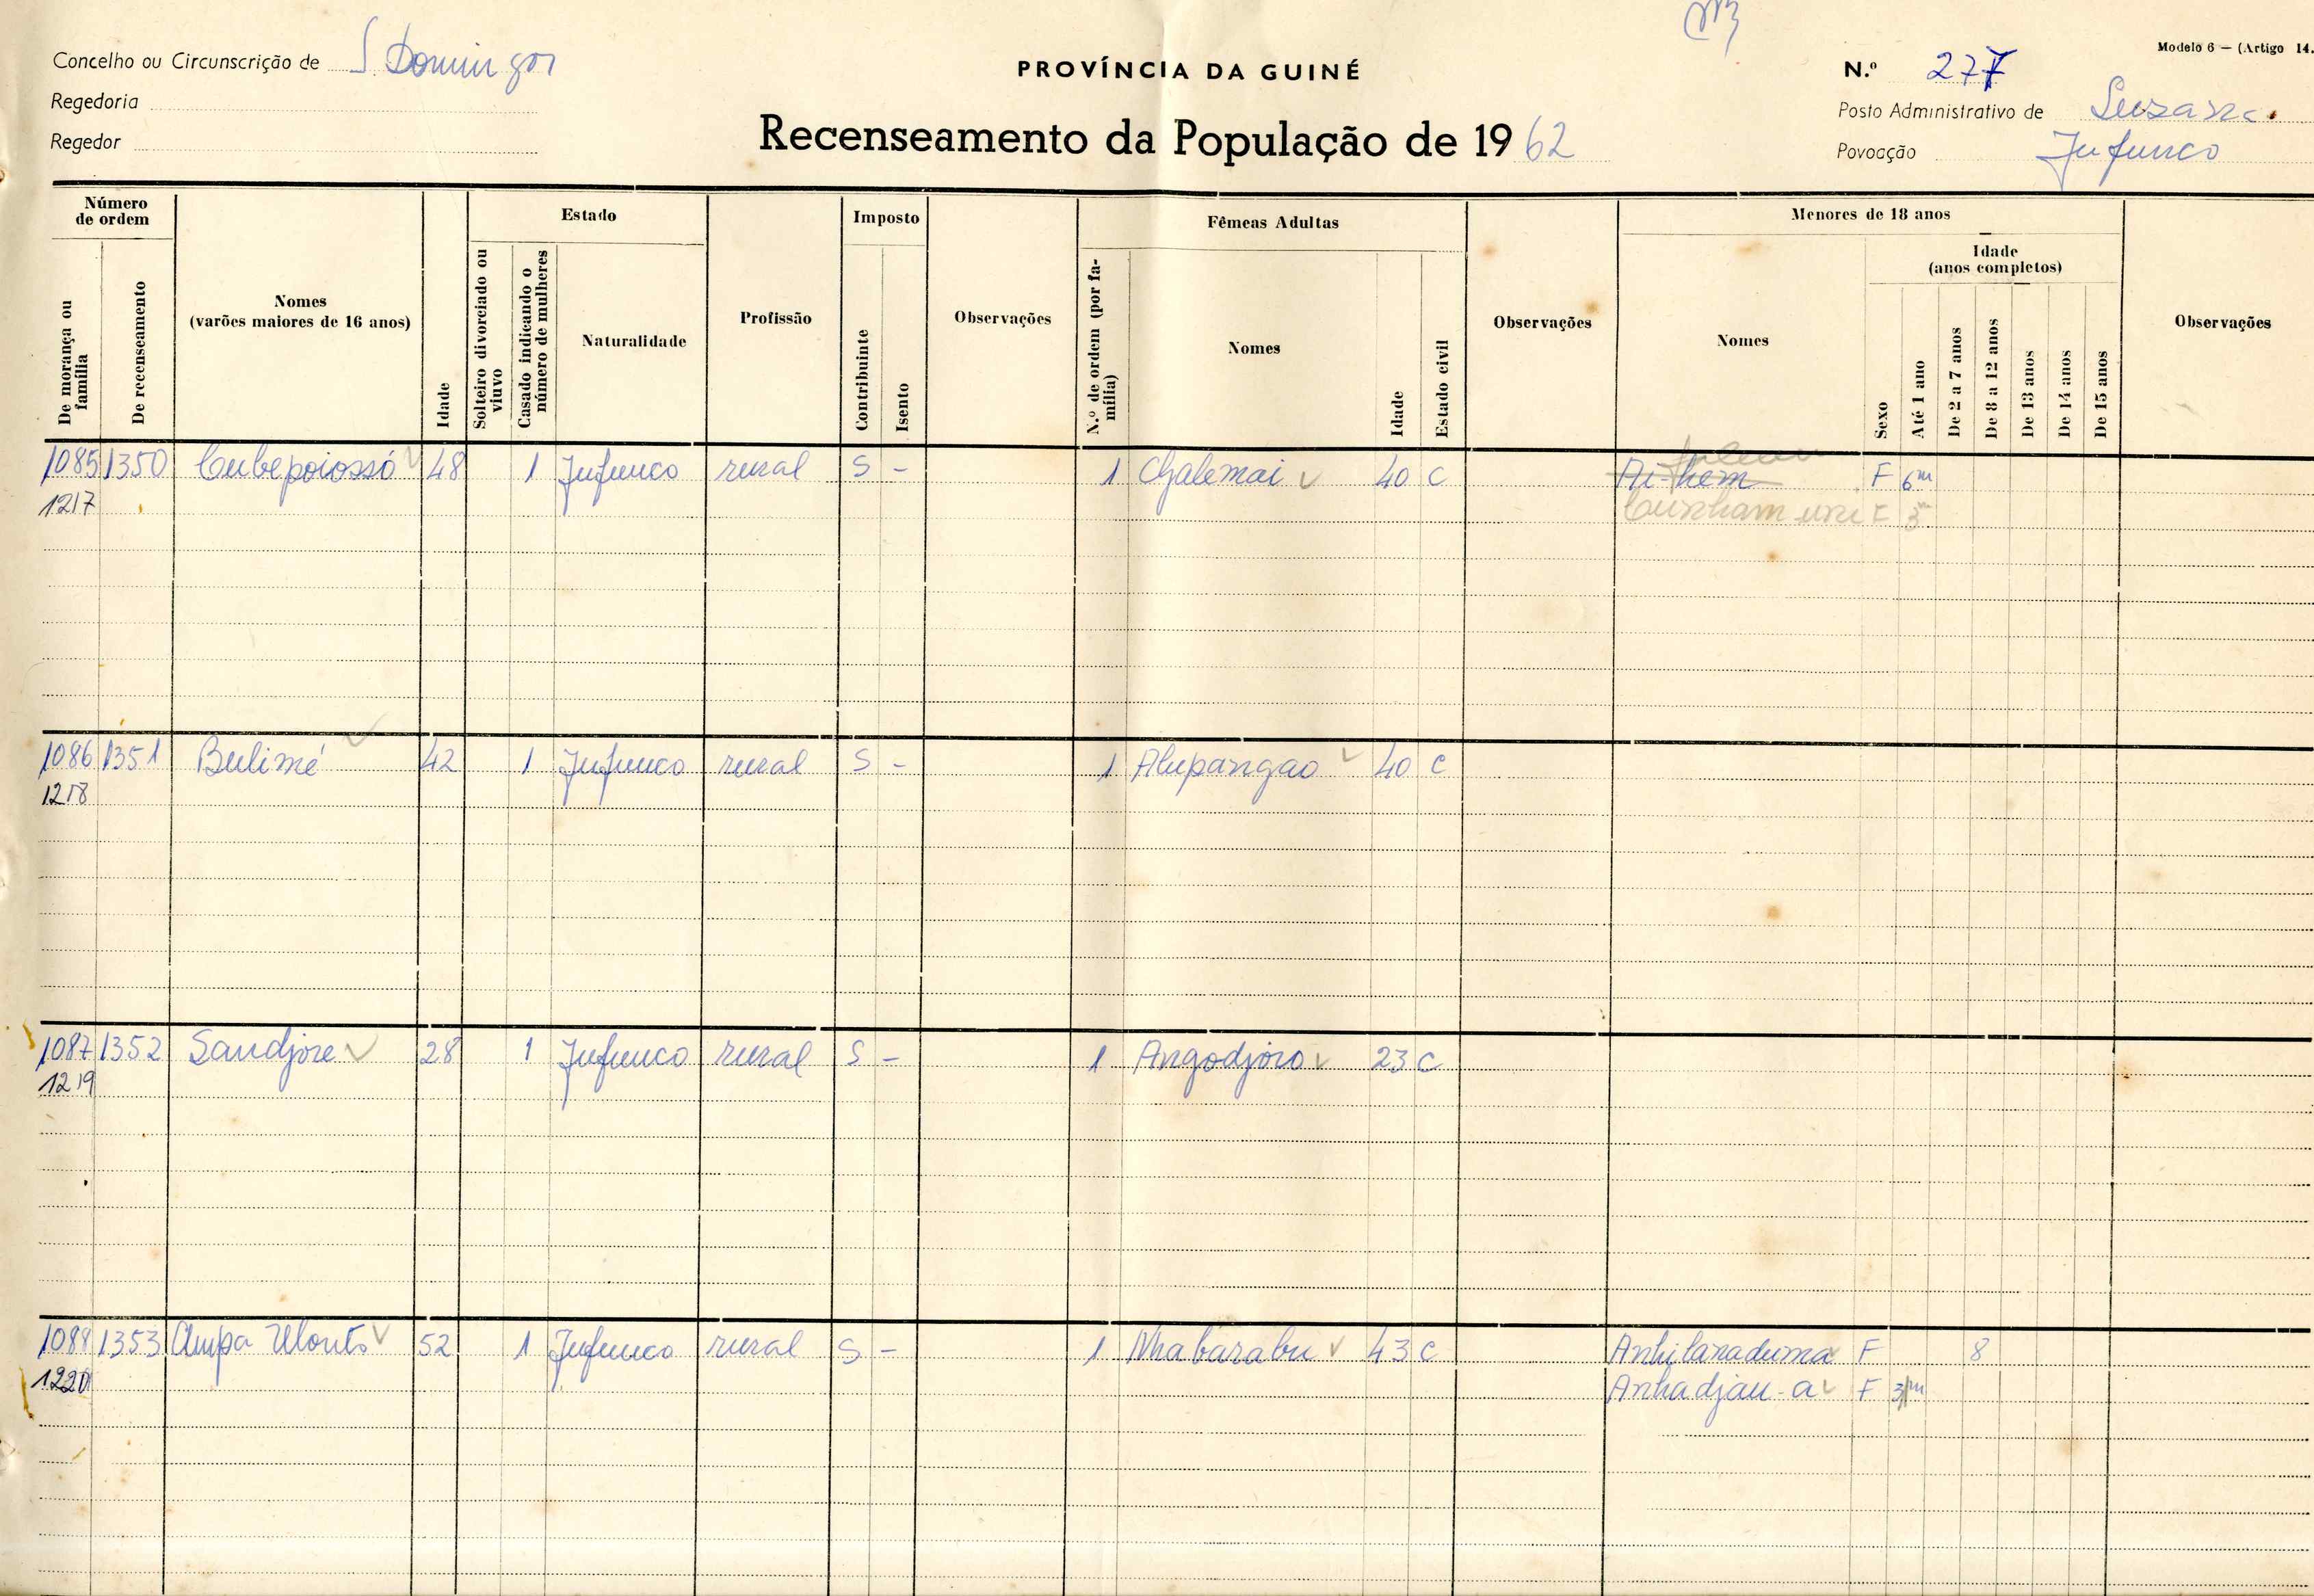 Concelho ou Circunscrição de S. Domingos
Regedoria
Regedor
PROVÍNCIA DA GUINÉ
Recenseamento da População de 1962
Modelo 6 — (Artigo 14.
N.º 277
Posto Administrativo de Suzana
Povoação Jufunco
Número de ordem
De morança ou família
De recenseamento
Nomes
(varões maiores de 16 anos)
Idade
Estado
Solteiro divorciado ou viuvo
Casado indicando o número de mulheres
Naturalidade
Profissão
Imposto
Contribuinte
Isento
Observações
Fêmeas Adultas
N.º de ordem (por família)
Nomes
Idade
Estado civil
Observações
Menores de 18 anos
Nomes
Sexo
Idade
(anos completos)
Até 1 ano
De 2 a 7 anos
De 8 a 12 anos
De 13 anos
De 14 anos
De 15 anos
Observações
1085 1350 Cubepoiossó 48 1 Jufunco rural S - 1 Chalemai 40 C Ai-hem F 6m
1217 F 3m
1086 1351 Bulimé 42 1 Jufunco rural S - 1 Alupangao 40 C
1218
1087 1352 Sandjore 28 1 Jufunco rural S - 1 Angodjoro 23 C
1219
1088 1353 Ampa Ulonto 52 1 Jufunco rural S - 1 Nhabarabu 43 C Anhilanaduma F 8
1220 Anhadjau-a F 3m